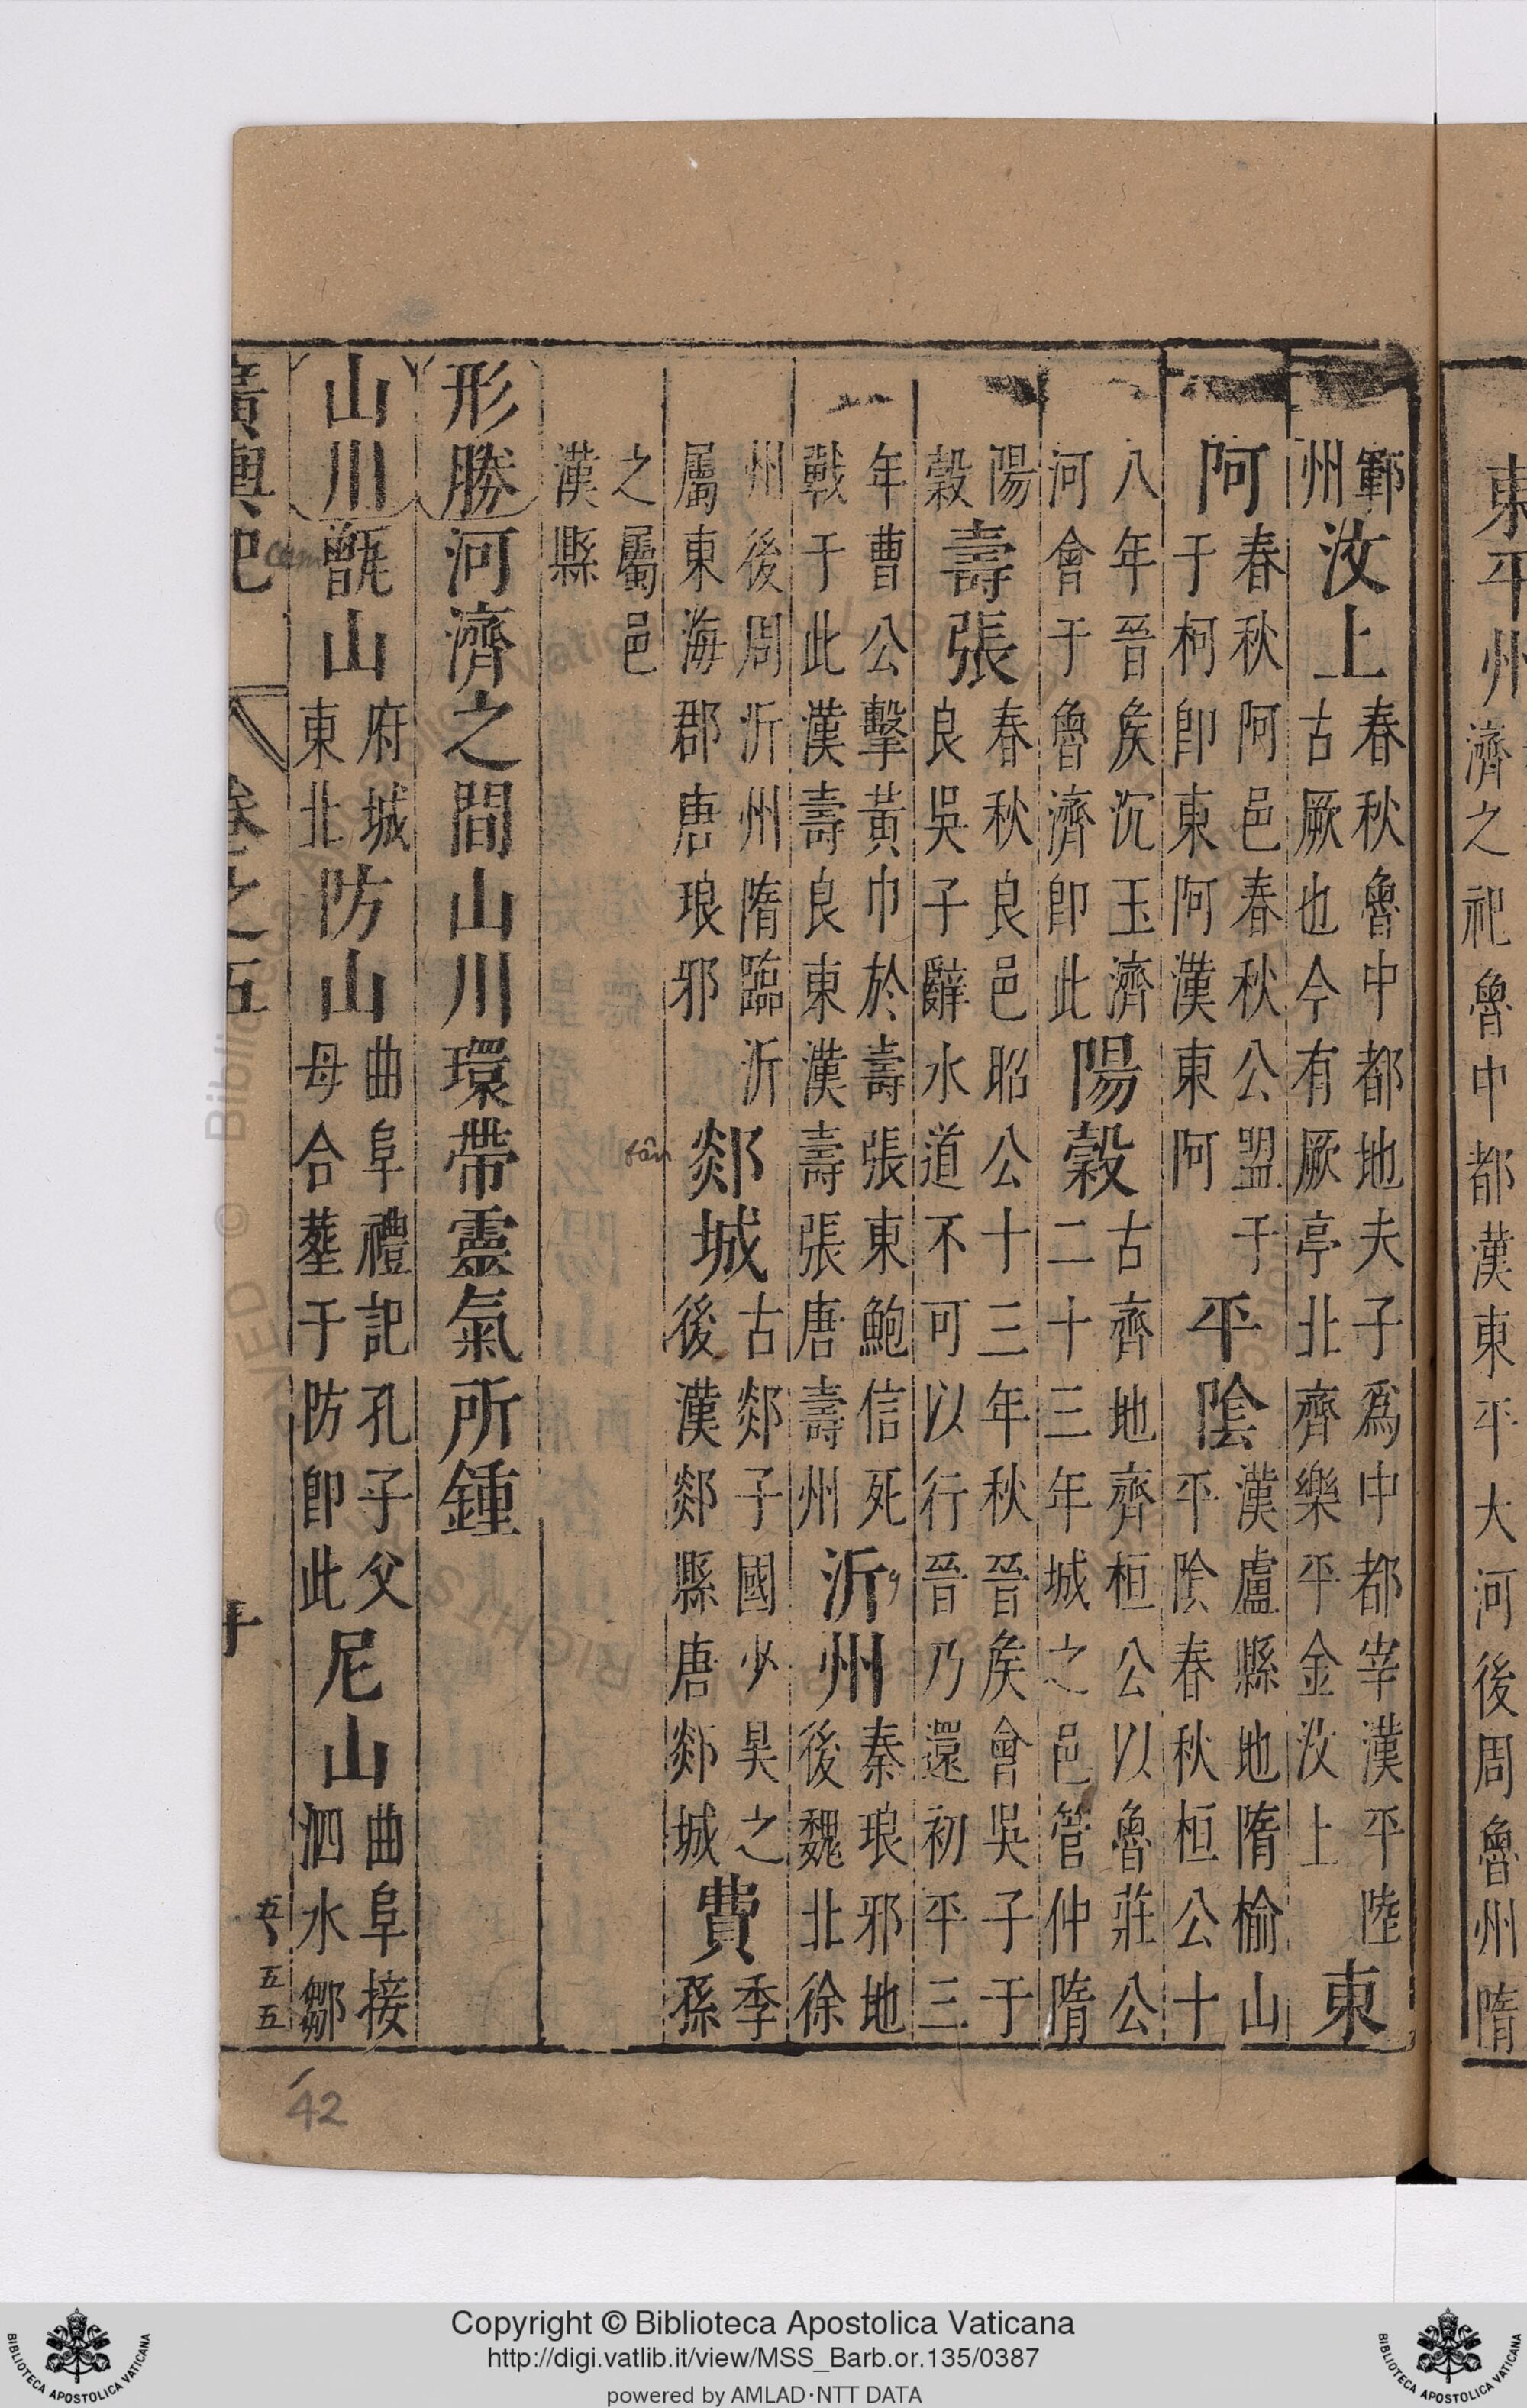 東平州濟之祀魯中都漢東平大河後周魯州隋
鄆州汝上春秋魯中都地夫子爲中都宰漢平陸古厥也今有厥亭北齊樂平金汝上東
阿春秋阿邑春秋公盟于于柯即東阿漢東阿平陰漢盧縣地隋榆山平陰春秋桓公十
八年晉矦沉玉濟河會于魯濟即此陽穀古齊地齊桓公以魯莊公二十三年城之邑管仲隋
陽穀壽張春秋良邑昭公十三年秋晉矦會吳子于良吳子辭水道不可以行晉乃還初平三
年曹公擊黃巾於壽張東鮑信死戰于此漢壽良東漢壽張唐壽州沂州秦琅邪地後魏北徐
州後周沂州隋臨沂屬東海郡唐琅邪郯城古郯子國少昊之後漢郯縣唐郯城費季孫
tân
之屬邑漢縣
形勝河濟之間山川環帶靈氣所鍾
山川甑山府城東北防山曲阜禮記孔子父母合葬于防即此尼山曲阜接泗水鄒
廣輿記 卷之五
五 五五
42
Copyright © Biblioteca Apostolica Vaticana
http://digi.vatlib.it/view/MSS_Barb.or.135/0387
powered by AMLAD·NTT DATA
BIBLIOTECA APOSTOLICA VATICANA
BIBLIOTECA APOSTOLICA VATICANA